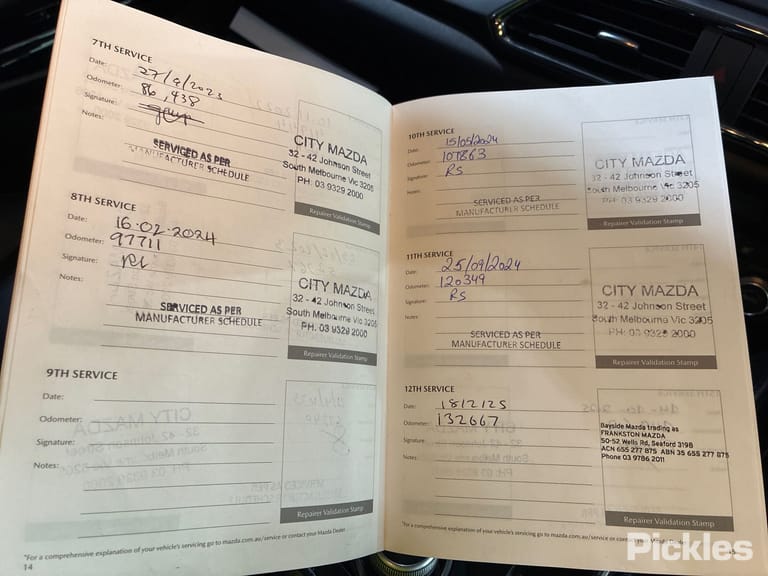 7TH SERVICE
Date: 27/9/2023
Odometer: 86,438
Signature:
Notes:
SERVICED AS PER
MANUFACTURER SCHEDULE
CITY MAZDA
32 - 42 Johnson Street
South Melbourne Vic 3205
PH: 03 9329 2000
Repairer Validation Stamp
8TH SERVICE
Date: 16-02-2024
Odometer: 97711
Signature:
Notes:
SERVICED AS PER
MANUFACTURER SCHEDULE
CITY MAZDA
32 - 42 Johnson Street
South Melbourne Vic 3205
PH: 03 9329 2000
Repairer Validation Stamp
9TH SERVICE
Date:
Odometer:
Signature:
Notes:
Repairer Validation Stamp
*For a comprehensive explanation of your vehicle's servicing go to mazda.com.au/service or contact your Mazda Dealer
14
10TH SERVICE
Date: 15/05/2024
Odometer: 107863
Signature: RS
Notes:
SERVICED AS PER
MANUFACTURER SCHEDULE
CITY MAZDA
32 - 42 Johnson Street
South Melbourne Vic 3205
PH: 03 9329 2000
Repairer Validation Stamp
11TH SERVICE
Date: 25/09/2024
Odometer: 120349
Signature: RS
Notes:
SERVICED AS PER
MANUFACTURER SCHEDULE
CITY MAZDA
32 - 42 Johnson Street
South Melbourne Vic 3205
PH: 03 9329 2000
Repairer Validation Stamp
12TH SERVICE
Date: 18/2/25
Odometer: 132667
Signature:
Notes:
Bayside Mazda trading as
FRANKSTON MAZDA
50-52 Wells Rd, Seaford 3198
ACN 655 277 875 ABN 35 655 277 875
Phone 03 9786 2011
Repairer Validation Stamp
*For a comprehensive explanation of your vehicle's servicing go to mazda.com.au/service or contact your Mazda Dealer
Pickles